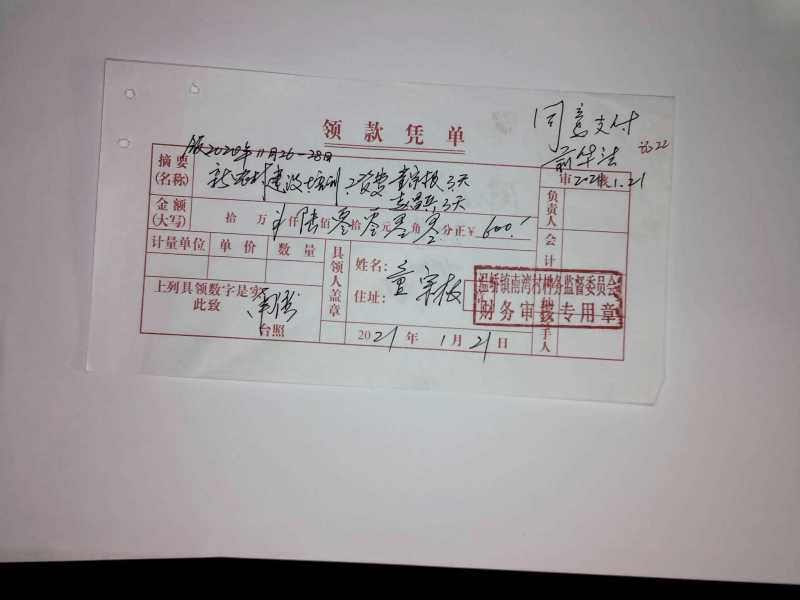 领款凭单
同意支付
2021.1.21
记22
2020年11月26-28日
摘要
(名称)
新农村建设培训工资费童宗极3天
3天
金额
(大写)
拾万 仟陆佰零拾零元零角零分正¥600.
审
负责人
会计
计量单位 单价 数量
具领人盖章
姓名:童宗极
住址:
上列具领数字是实
此致
台照
2021年1月21日
温峤镇南湾村村务监督委员会
财务审核专用章
经手人